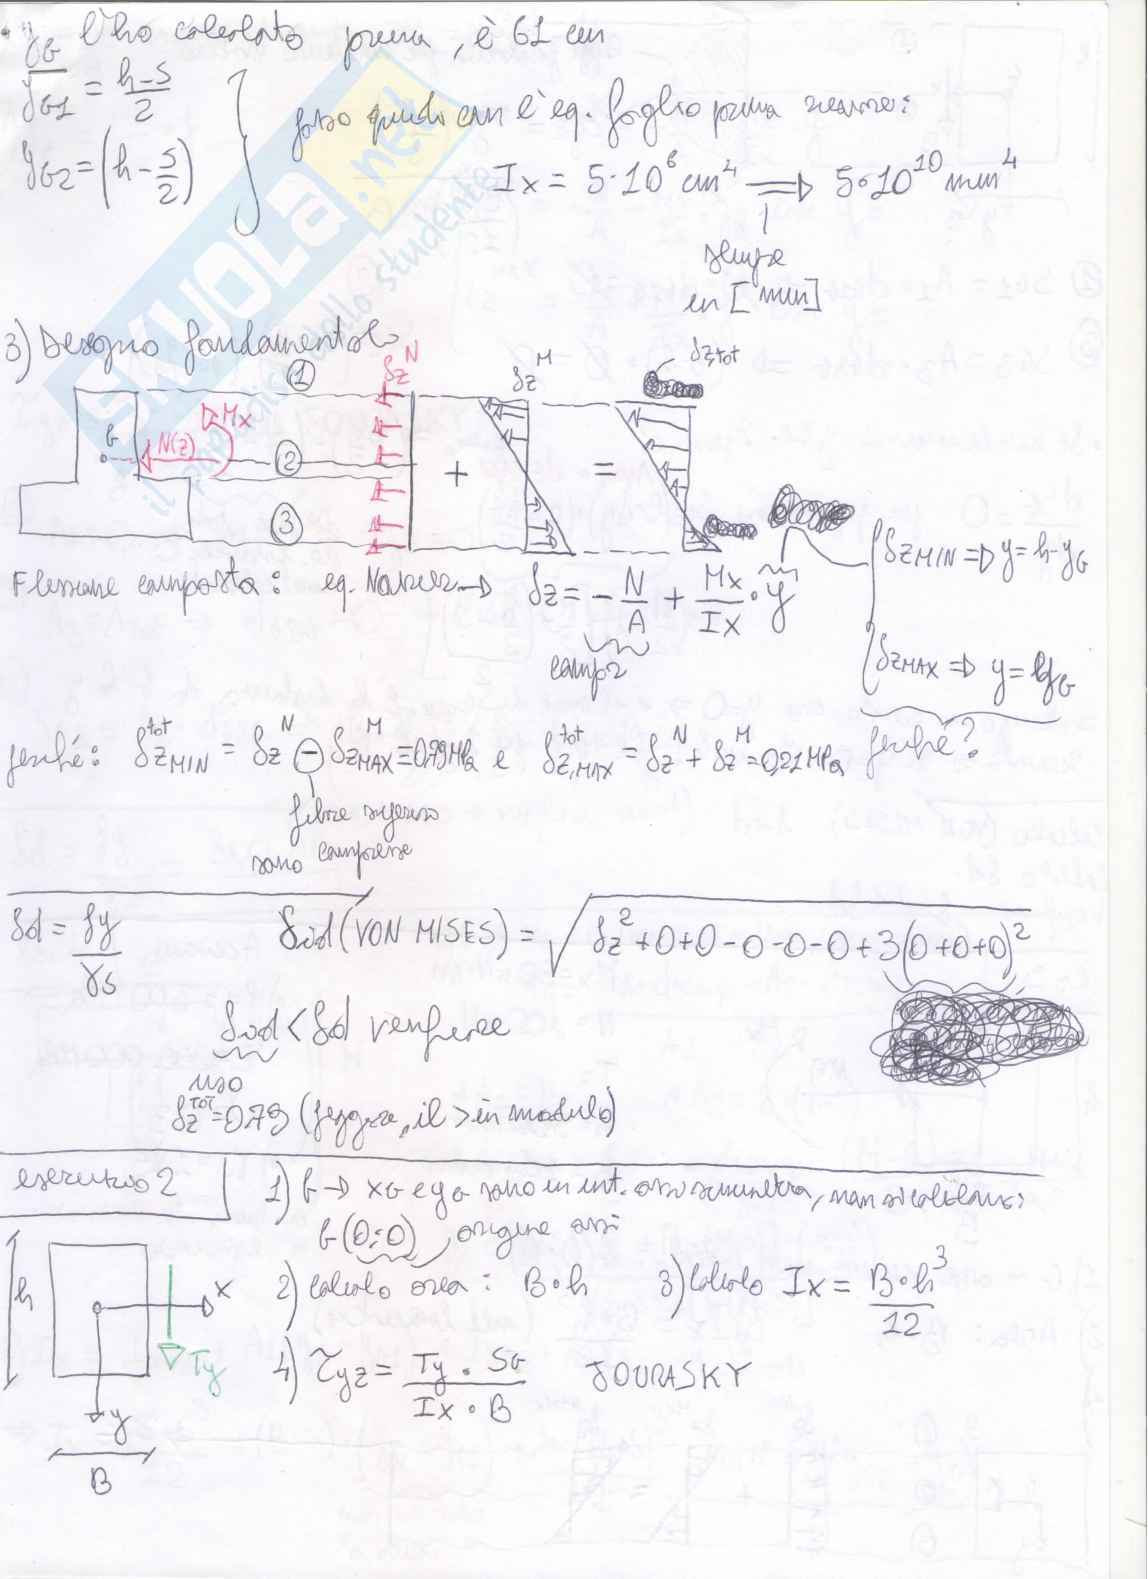 yG l'ho calcolato prima, è 61 cm
yG1 = (h-s)/2
yG2 = (h - s/2)
quindi con l'eq. foglio prima
Ix = 5·10^6 cm^4 ⇒ 5·10^10 mm^4
sempre
in [mm]
SKUOLA.net
il paradiso dello studente
3) Disegno fondamentale
① δz^N δz^M δz,tot
G N(z) Mx
② + =
③
Flessione composta: eq. Navier → δz = - N/A + Mx/Ix · y
compr
δz MIN ⇒ y = h-yG
δz MAX ⇒ y = yG
perché?
perché: δz MIN^tot = δz^N ⊖ δz MAX^M = 0,79 MPa e δz,MAX^tot = δz^N + δz^M = 0,21 MPa
fibre
sono compresse
δd = fy/γs δid (VON MISES) = √(δz^2+0+0-0-0-0+3(0+0+0)^2)
δid < δd verificare
uso
δz^tot = 0,79 (peggiore, il > in modulo)
esercizio 2
1) G → xG e yG sono in int. assi simmetria, non si calcolano:
G(0;0), origine assi
2) Calcolo area: B·h 3) Calcolo Ix = B·h^3/12
h x
Ty
y
B
4) τyz = Ty · SG / Ix · B JOURASKY